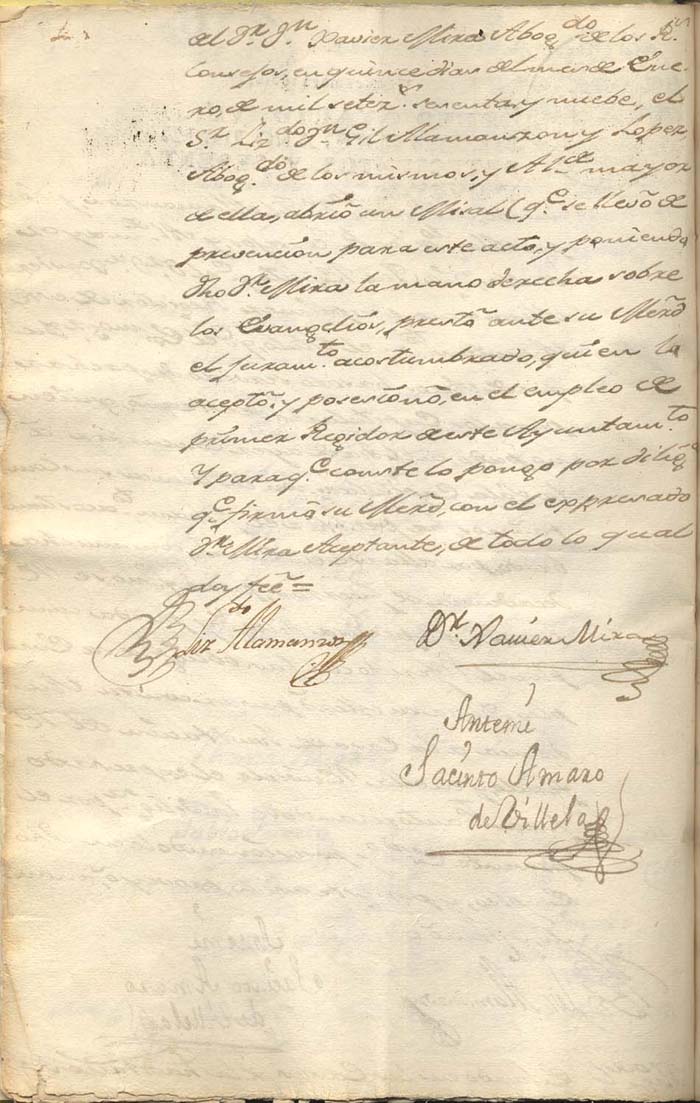 del Dr. Dn. Xavier Mira Abogdo. de los Rs.
Consejos, en quince dias del mes de Ene-
ro, de mil setezs. sesenta, y nuebe, el
Sr. Lizdo. Dn. Gil Alamanzon y Lopez
Abogdo. de los mismos, y Alde. mayor
de ella, abrió un Misal (qe. se llevó de
prevención para este acto, y poniendo
dho Dr. Mira la mano derecha sobre
los Evangelios, prestó ante su Merd.
el juramto. acostumbrado, quien lo
aceptó, y posesionó, en el empleo de
primer Regidor de este Ayuntamto.
Y para qe. conste lo pongo por dilig.a
qe. firmó su Merd. con el expresado
Dr. Mira Aceptante, de todo lo qual
doy feé =
Lizdo. Alamanzon
Dr. Xavier Mira
Antemi
Jacinto Amaro
de Villela